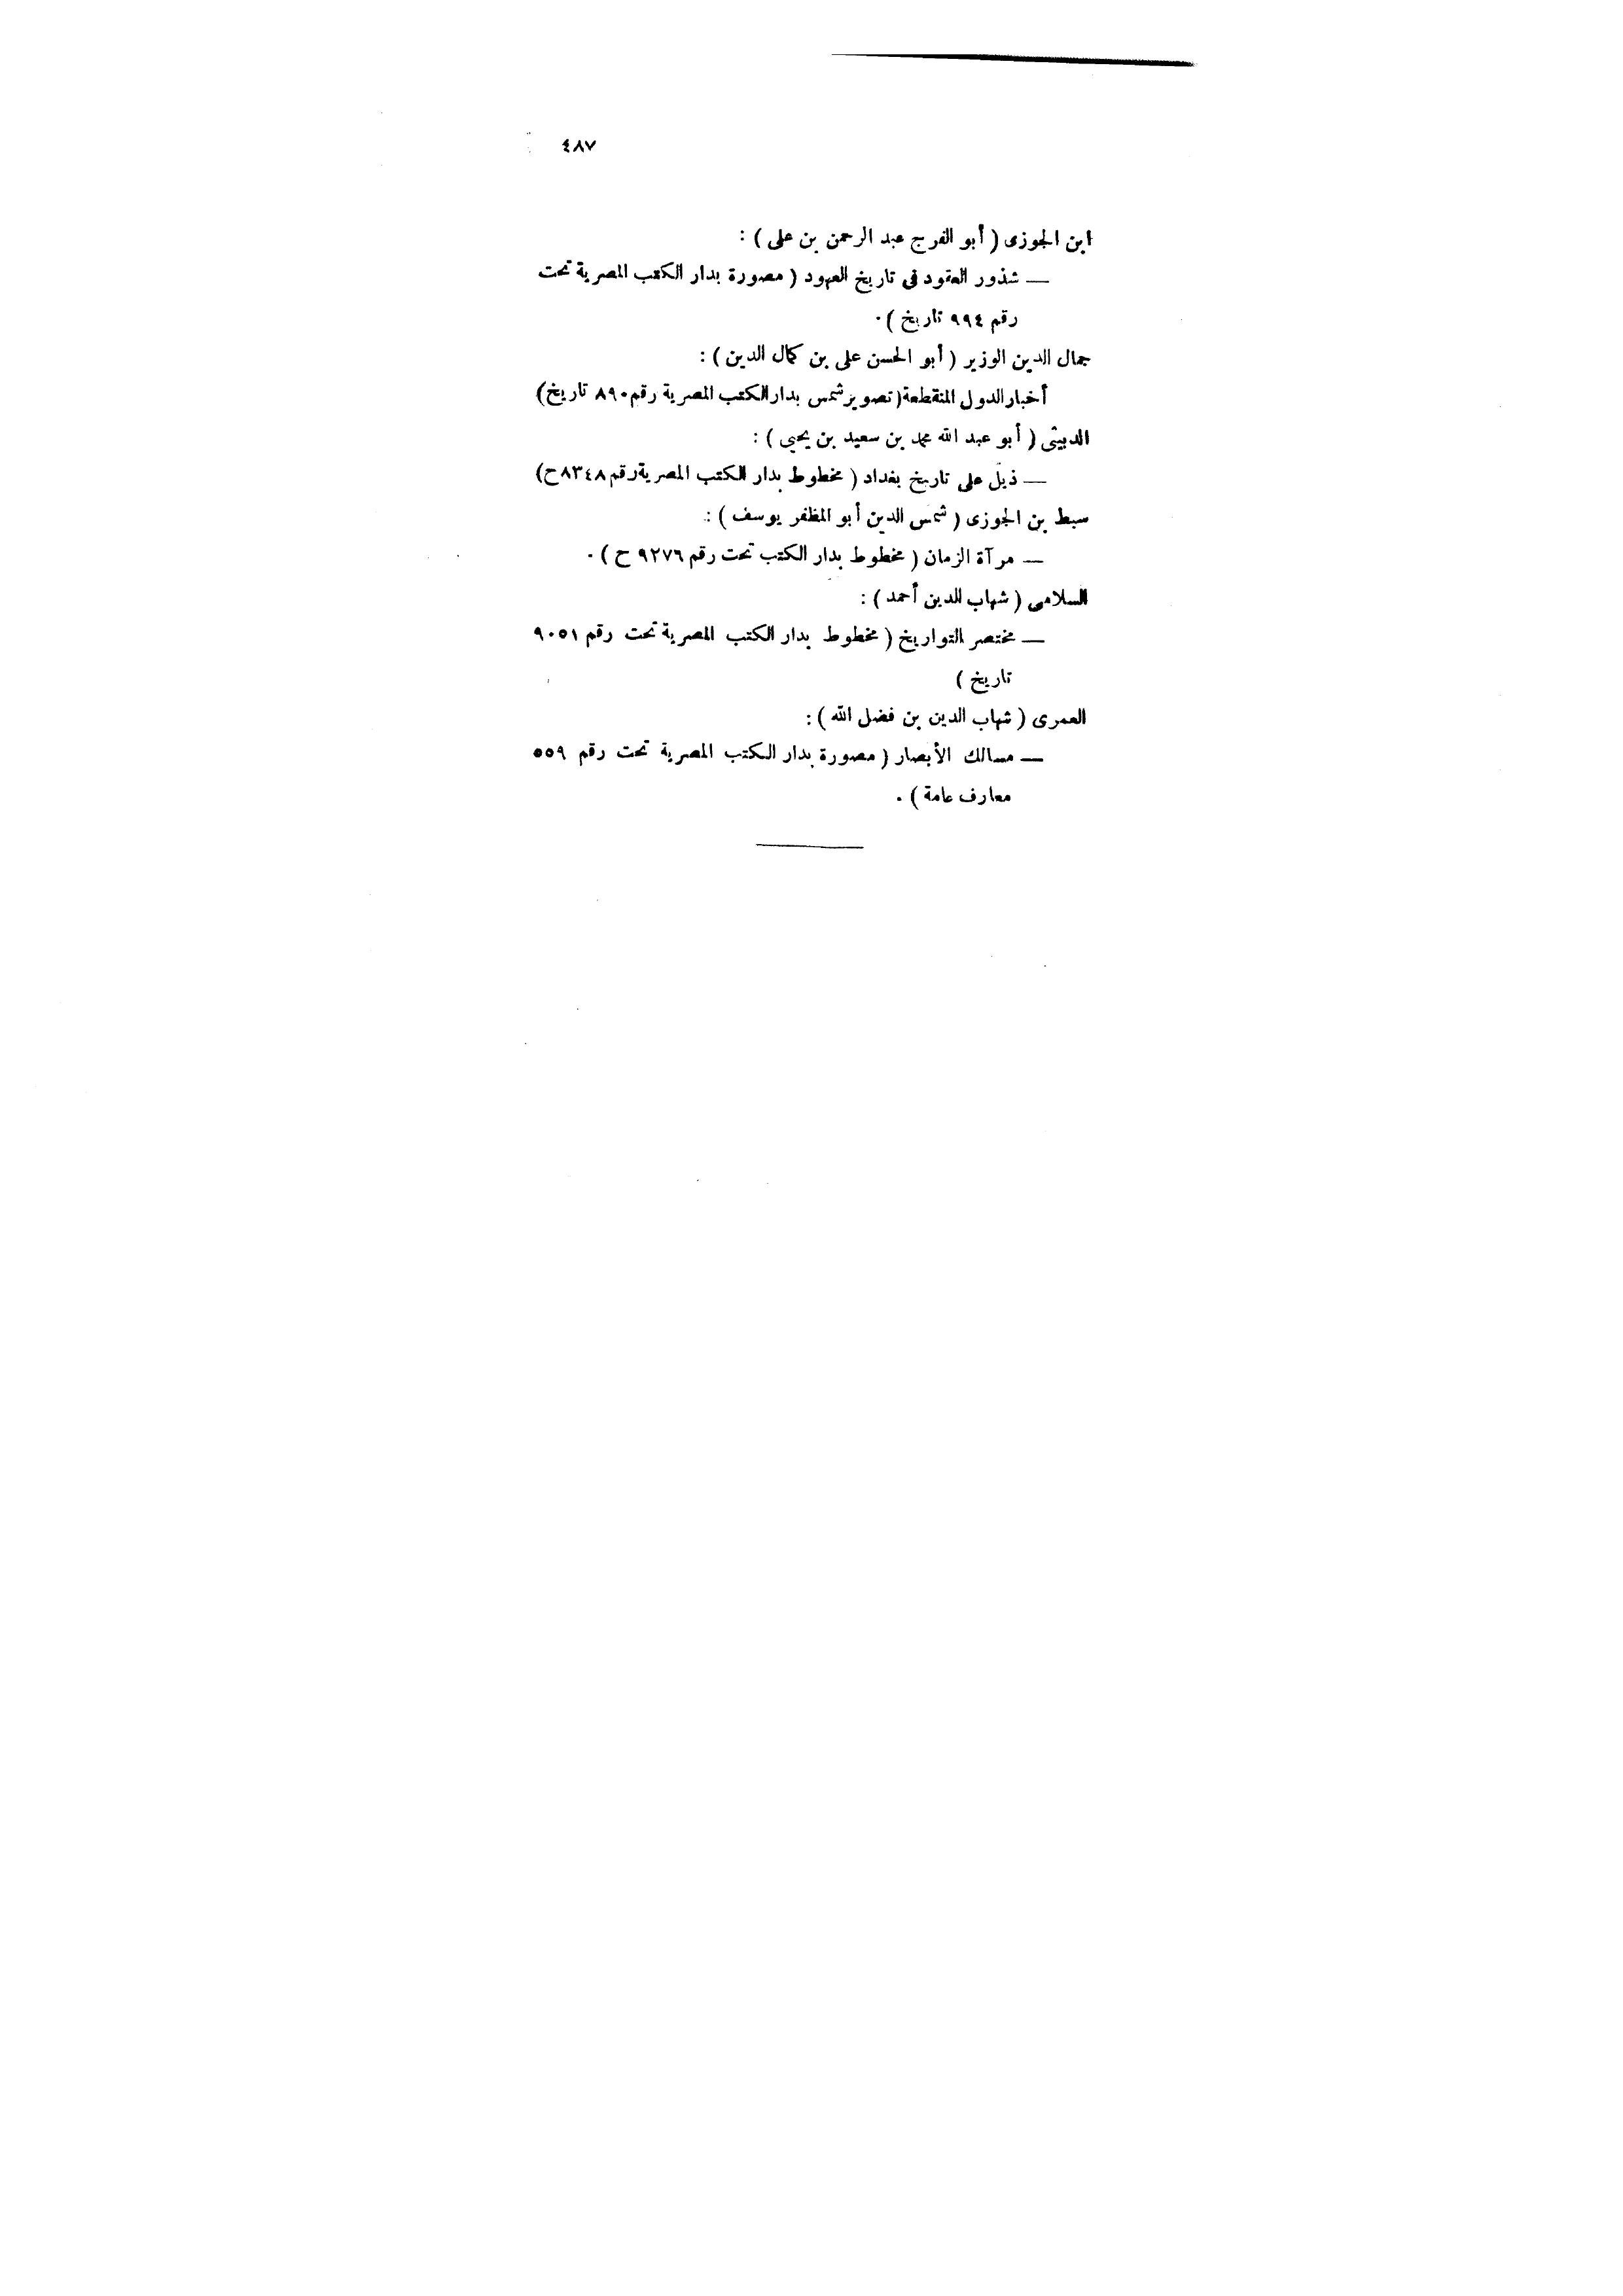 ٤٨٧
ابن الجوزى ( أبو الفرج عبد الرحمن بن على ) :
— شذور العقود فى تاريخ العهود ( مصورة بدار الكتب المصرية تحت
رقم ٩٩٤ تاريخ ) .
جمال الدين الوزير ( أبو الحسن على بن كمال الدين ) :
أخبار الدول المنقطعة ( تصوير شمس بدار الكتب المصرية رقم ٨٩٠ تاريخ )
الدبيثى ( أبو عبد الله محمد بن سعيد بن يحيى ) :
— ذيل على تاريخ بغداد ( مخطوط بدار الكتب المصرية رقم ٨٣٤٨ ح )
سبط بن الجوزى ( شمس الدين أبو المظفر يوسف ) :
— مرآة الزمان ( مخطوط بدار الكتب تحت رقم ٩٢٧٦ ح ) .
السلامى ( شهاب الدين أحمد ) :
— مختصر التواريخ ( مخطوط بدار الكتب المصرية تحت رقم ٩٠٥١
تاريخ )
العمرى ( شهاب الدين بن فضل الله ) :
— مسالك الأبصار ( مصورة بدار الكتب المصرية تحت رقم ٥٥٩
معارف عامة ) .